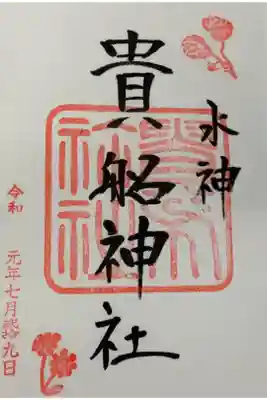 水神
貴船神社
令和 元年七月弐拾九日